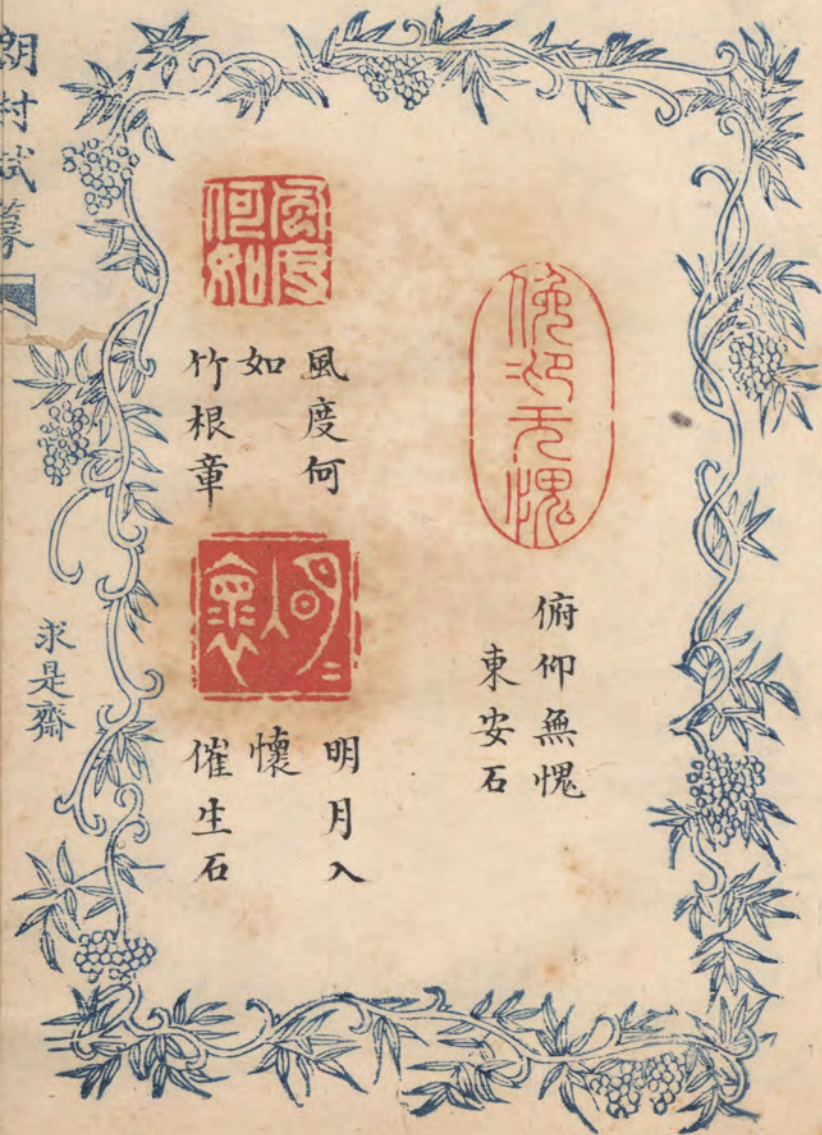 俛仰无愧
俯仰無愧
東安石
風度
何如
風度何
如
竹根章
明二入
褱
明月入
懷
催生石
朗村試篆
求是齋